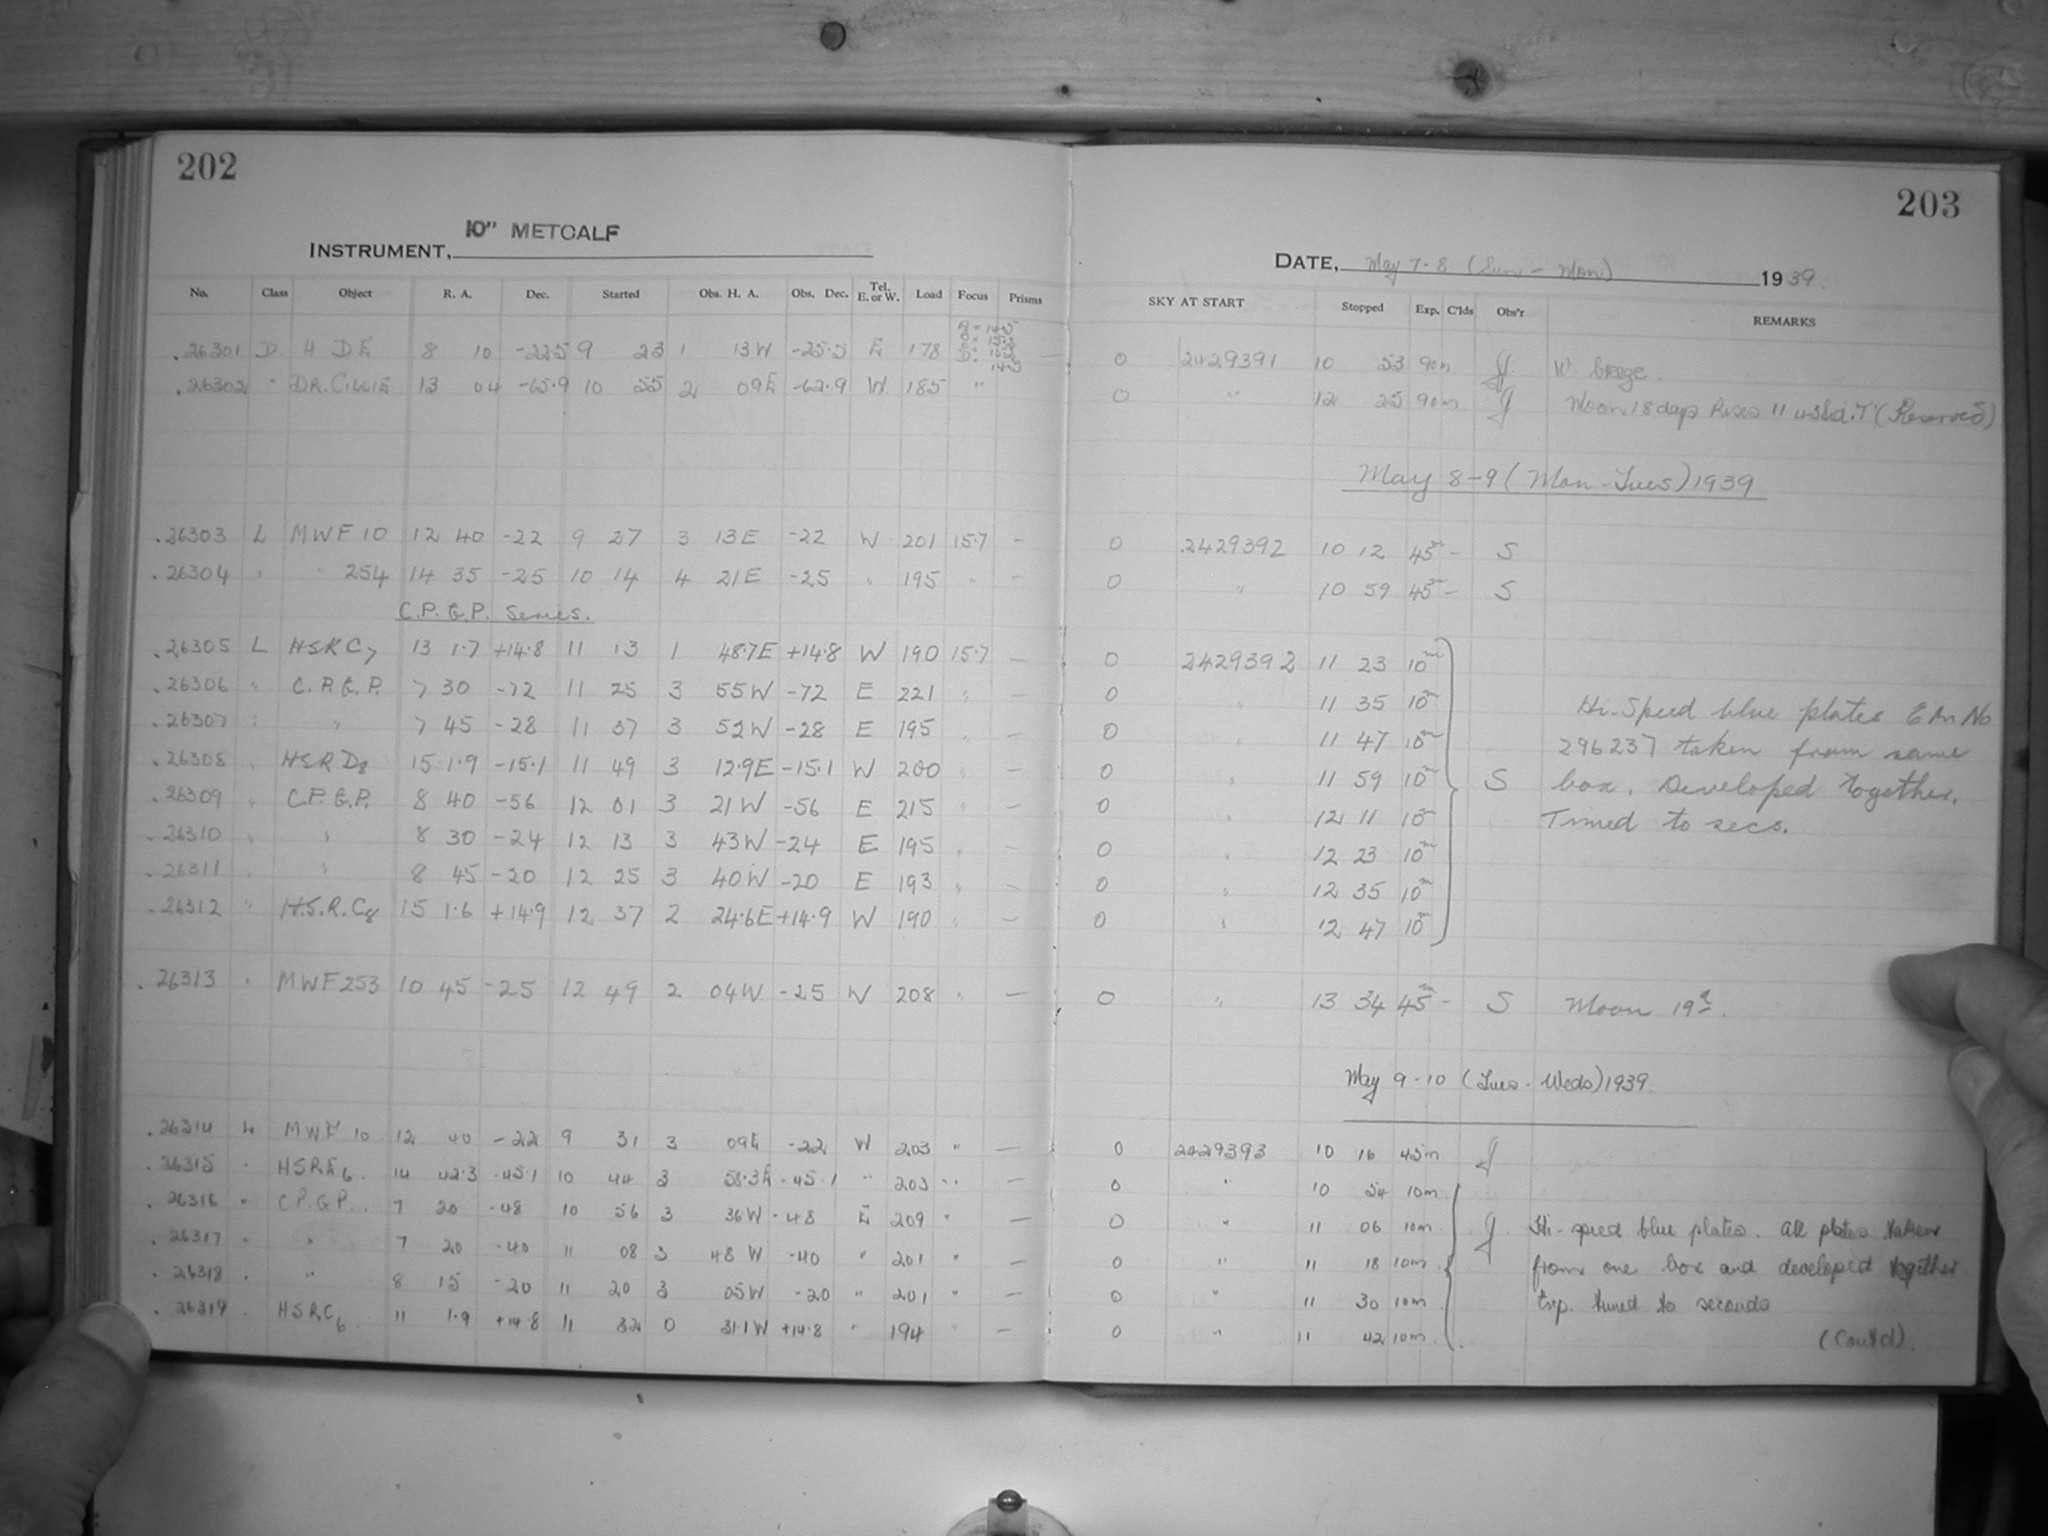 202
10" METCALF
INSTRUMENT,
No. Class Object R. A. Dec. Started Obs. H. A. Obs. Dec. Tel. E. or W. Load Focus Prisms
.26301 D 4 DE 8 10 -22.5 9 23 1 13W -25.5 E 178
.26302 " DR.CILLIE 13 04 -65.9 10 55 2 09E -62.9 W. 185 "
.26303 L MWF 10 12 40 -22 9 27 3 13E -22 W 201 15.7 –
.26304 " " 254 14 35 -25 10 14 4 21E -25 " 195 " –
C.P.G.P. Series.
.26305 L HSRC7 13 1.7 +14.8 11 13 1 48.7E +14.8 W 190 15.7 –
.26306 " C.P.G.P. 7 30 -72 11 25 3 55W -72 E 221 " –
.26307 " " 7 45 -28 11 37 3 52W -28 E 195 " –
.26308 " HSRD8 15 1.9 -15.1 11 49 3 12.9E -15.1 W 200 " –
.26309 " C.P.G.P. 8 40 -56 12 01 3 21W -56 E 215 " –
.26310 " " 8 30 -24 12 13 3 43W -24 E 195 " –
.26311 " " 8 45 -20 12 25 3 40W -20 E 193 " –
.26312 " H.S.R.C8 15 1.6 +14.9 12 37 2 24.6E +14.9 W 190 " –
.26313 " MWF253 10 45 -25 12 49 2 04W -25 W 208 " –
.26314 L MWF 10 12 40 -22 9 31 3 09E -22 W 203 " –
.26315 " HSRE6. 14 02.3 -45.1 10 44 3 58.3E -45.1 " 203 " –
.26316 " C.P.G.P. 7 20 -48 10 56 3 36W -48 E 209 " –
.26317 " " 7 20 -40 11 08 3 48W -40 " 201 " –
.26318 " " 8 15 -20 11 20 3 05W -20 " 201 " –
.26319 " HSRC6. 11 1.9 +14.8 11 32 0 31.1W +14.8 " 194 " –
203
DATE, May 7-8 (Sun - Mon) 1939.
SKY AT START Stopped Exp. C'lds Obs'r REMARKS
0 2429391 10 53 90m W. breeze.
0 " 12 25 90m Moon 18 days Rises 11 43 Sid.T (Reserved)
May 8-9 (Mon-Tues) 1939
0 .2429392 10 12 45m – S
0 " 10 59 45m – S
0 2429392 11 23 10m
0 " 11 35 10m Hi-Speed blue plates Em No
0 " 11 47 10m 296237 taken from same
0 " 11 59 10m S box. Developed together.
0 " 12 11 10m Timed to secs.
0 " 12 23 10m
0 " 12 35 10m
0 " 12 47 10m
0 " 13 34 45m – S Moon 19d.
May 9-10 (Tues-Weds) 1939.
0 2429393 10 16 45m
0 " 10 54 10m
0 " 11 06 10m Hi-speed blue plates. All plates taken
0 " 11 18 10m from one box and developed together
0 " 11 30 10m Exp. timed to seconds
0 " 11 42 10m (Contd).